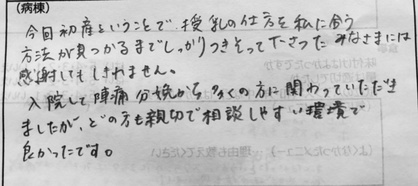 (病棟)
今回初産ということで、授乳の仕方を私に合う
方法が見つかるまでしっかりつきそって下さった みなさまには
感謝してもしきれません。
入院して陣痛 分娩から 多くの方に関わっていただき
ましたが、どの方も親切で相談しやすい環境で
良かったです。